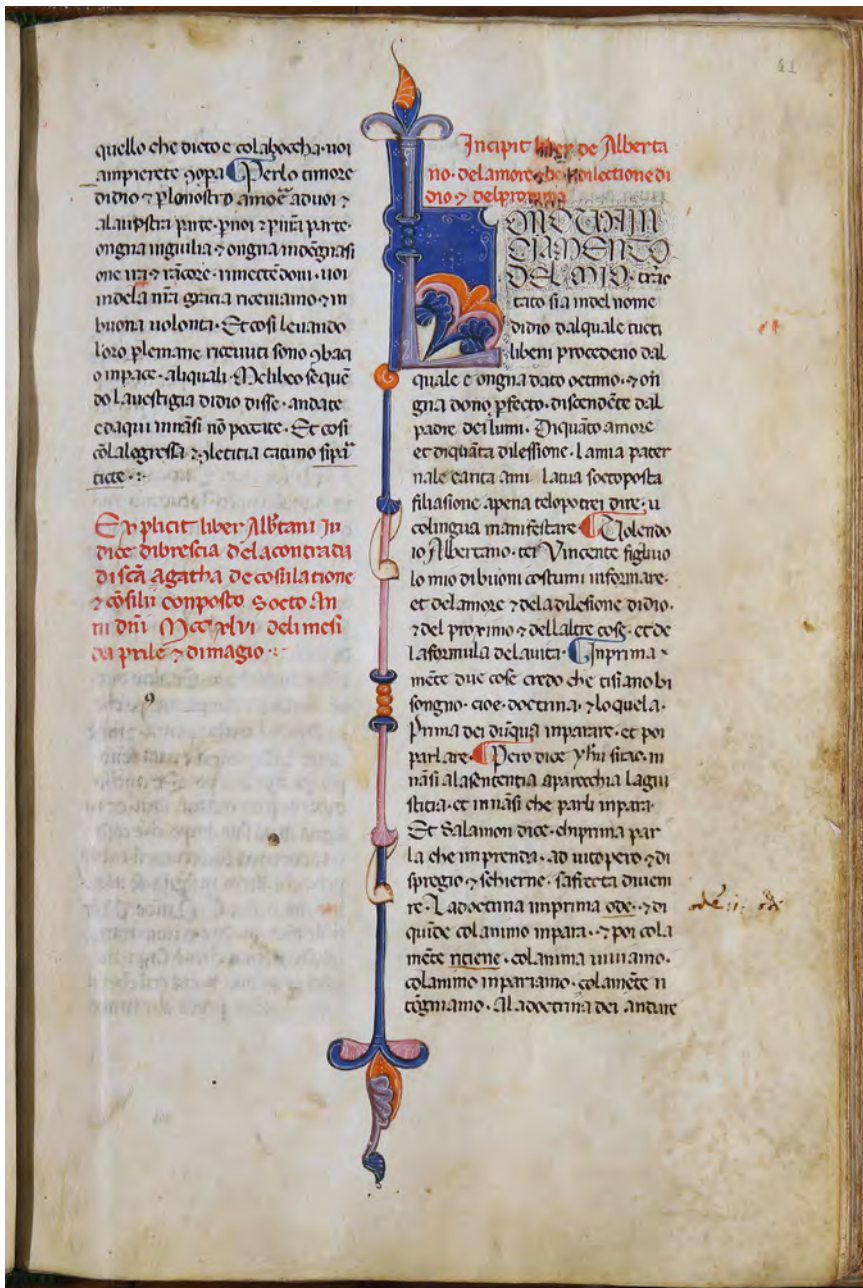 41
quello che dicto e colaboccha· uoi
ampierete ꝯopa Perlo timore
didio ⁊ plonostro amoē aduoi ⁊
alauostra parte· pnoi ⁊ pnr̃a parte·
ongna ingiulia ⁊ ongna indẽgnasi
one ira ⁊ rãcore· rimectẽ doui· uoi
indela nr̃a gracia riceuiamo· ⁊ in
buona uolontà· Et cosi leuando
l'oro plemane riceuuti sono ꝯbaci
o inpace· aliquali· Melibeo sequẽ
do lauestigia didio disse· andate
edaqui innãsi nõ peccate· Et cosi
cõlalegressa ⁊ ꝯletitia catuno sipar
titte·:·
Explicit liber Albtani Iu
dice dibrescia delacontrada
discã agatha decõsulatione
⁊ cõsilii conposto Socto An
ni dñi Mccxlvi delimesi
daprile ⁊ dimagio·:
Incipit liber de Alberta
no· delamore ⁊ dilectione di
dio ⁊ delproximo
DIAMENTO
DEL MIO· trac
tato sia indel nome
didio dalquale tucti
libeni procedeno dal
quale e ongna dato octimo· ⁊ on
gna dono pfecto· discendẽte dal
padre deilumi· Diquãto amore
et diquãta dilessione· Lamia pater
nale carita ami latua soctoposta
filiasione apena telopotrei dire· u
colingua manifestare Uolendo
io Albertano· ter Vincente figluo
lo mio dibuoni costumi informare·
et delamore ⁊ dela dilesione didio·
⁊ del proximo ⁊ dellaltre cose· et de
laformula delauita· Inprima
mẽte due cose credo che tisiano bi
songno· cioe· doctrina· ⁊ loquela·
Prima dei dũqua inparare· et poi
parlare· Pero dice yhu sirac· in
nãsi alasententia aparecchia lagiu
stitia· et innãsi che parli inpara·
Et Salamon dice· chiprima par
la che imprenda· ad uitopero ⁊ di
spregio ⁊ schierne· safrecta diueni
re· Ladoctrina imprima ode· ⁊ di
quĩde colanimo inpara· ⁊ poi cola
mẽte ritiene· colanima uiuiamo·
colanimo inpariamo· colamẽte ri
tẽgniamo· Aladoctrina dei andare